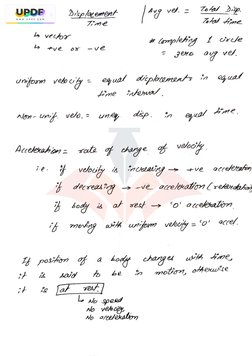 UPDF
WWW.UPDF.COM
Displacement / Time
Avg vel. = Total Disp. / Total time.
↳ vector
↳ +ve or -ve
# Completing 1 circle
= zero avg vel.
uniform velocity = equal displacements in equal
time interval.
Non-unif velo. = uneq disp. in equal time.
Acceleration = rate of change of velocity.
i.e. if velocity is increasing → +ve acceleration
if decreasing → -ve acceleration (retardation)
if body is at rest → '0' acceleration
if moving with uniform velocity = '0' accel.
If position of a body changes with time,
it is said to be in motion, otherwise
it is at rest.
↳ No speed
No velocity
No acceleration